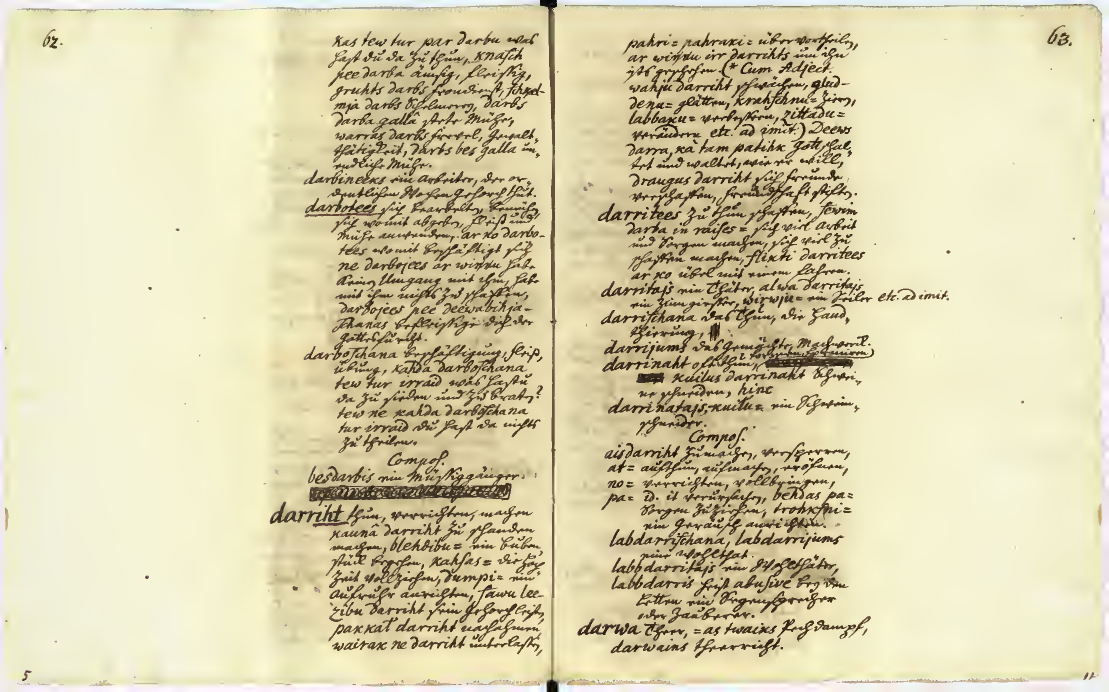 62.
kas tew tur par darbu was
hast du da zu thun, knasch
pee darba ämsig, fleißig,
gruhts darbs frondienst, schkel-
mja darbs Schelmerey, darbs
darba gallâ stete Mühe,
warras darbs frevel, Gewalt-
thätigkeit, darbs bes galla un-
endliche Mühe.
darbineeks ein Arbeiter, der or-
dentlichen Wochen Gehorch thut.
darbotees sich bearbeiten, bemühen
sich womit abgeben, fleiß und
Mühe anwenden, ar ko darbo-
tees womit beschäftigt sich
ne darbojees ar wiņņu habe
keinen Umgang mit ihm, habe
mit ihm nichts zu schaffen,
darbojees pee deewabihja-
schanas befleißige dich der
Gottesfurcht.
darboschana beschäftigung, fleiß,
übung, kahda darboschana
tew tur irraid was hastu
da zu sieden und zu braten?
tew ne kahda darboschana
tur irraid du hast da nichts
zu theilen.
Compos.
besdarbis ein Müßiggänger.
darriht thun, verrichten, machen
kaunâ darriht zu schanden
machen, blehdibu= ein buben
stück begehen, kahsas= die Hoch
zeit vollziehen, dumpi= ein
Aufruhr anrichten, sawu lee-
zibu darriht sein Gehorch leisten,
pakkaļ darriht nachahmen
wairak ne darriht unterlassen,
5
63.
pahri= pahraki= übervortheilen,
ar wiņņu irr darrihts um ihn
ists geschehen. (* Cum Adject.
wahju darriht schwächen, glud-
denu= glätten, krahschnu= zieren,
labbaku= verbessern, zittadu=
verändern etc. ad imit.) Deews
darra, kâ tam patihk Gott schal-
tet und waltet, wie er will
draugus darriht sich freunde
verschaffen, freundschaft stiften.
darritees zu thun schaffen, sewim
darba in raises= sich viel Arbeit
und Sorgen machen, sich viel zu
schaffen machen, slikti darritees
ar ko übel mit einem fahren.
darritajs ein Thäter, alwa darritajs
ein Zinngießer, wirwju= ein Seiler etc. ad imit.
darrischana das Thun, die Hand-
thierung,
darrijums das Gemächte, Machwerk.
darrinaht oft thun,
kuilus darrinaht Schwei-
ne schneiden, hinc
darrinatajs, kuilu= ein Schwein-
schneider.
Compos.
aisdarriht zumachen, versperren,
at= aufthun, aufmachen, eröfnen,
no= verrichten, vollbringen,
pa= id. it verursachen, behdas pa=
Sorgen zuziehen, trohksni=
ein Geräusch anrichten.
labdarrischana, labdarrijums
eine wohlthat.
labbdarritajs ein Wohlthäter,
labbdarris heist abusive bey den
Letten ein Segensprecher
oder Zauberer.
darwa Theer, =as twaiks Pechdampf,
darwains theerricht.